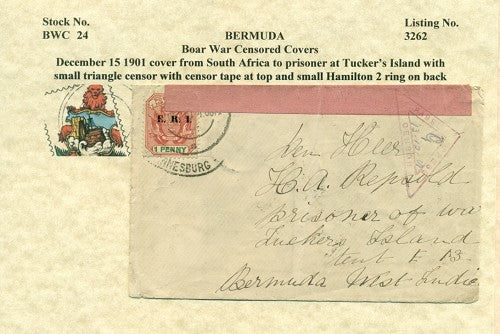 Stock No.
BWC 24
BERMUDA
Listing No.
3262
Boar War Censored Covers
December 15 1901 cover from South Africa to prisoner at Tucker's Island with
small triangle censor with censor tape at top and small Hamilton 2 ring on back
E. R. I.
1 PENNY
NNESBURG
Den Heer
H. A. Repsold
prisoner of war
Tuckers Island
tent E 13
Bermuda West Indie